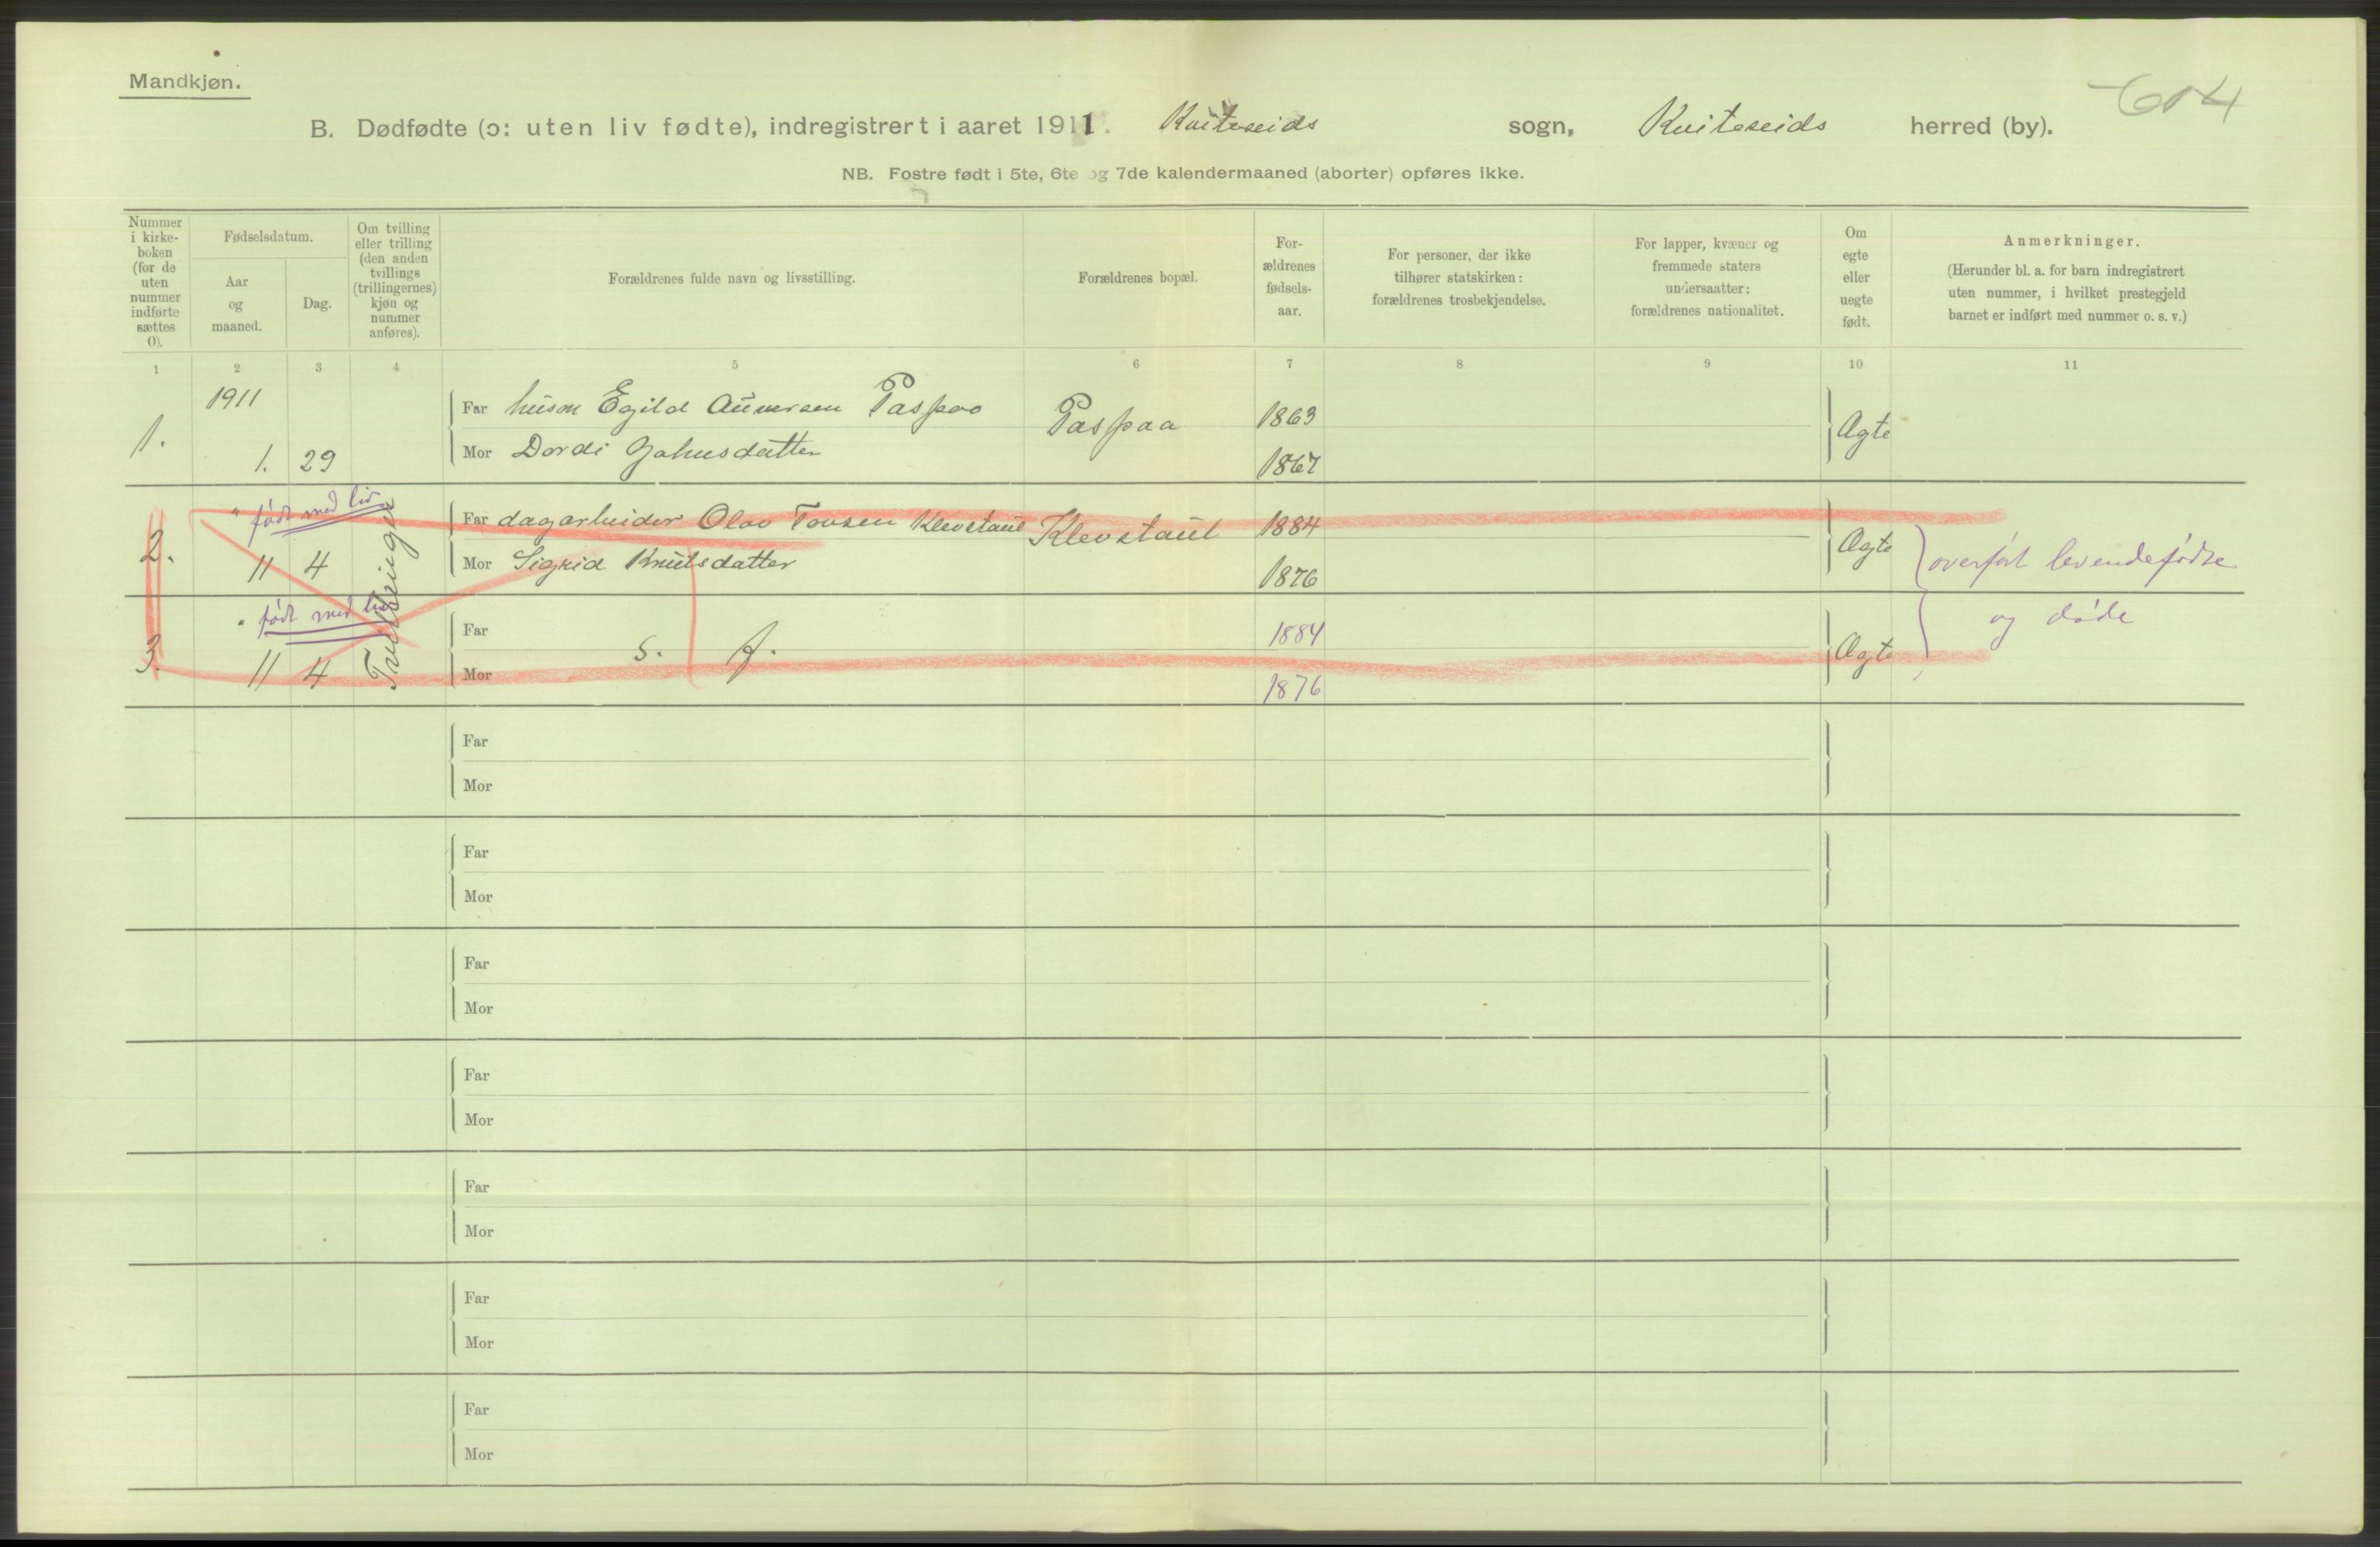 Mandkjøn.
614
B. Dødfødte (ɔ: uten liv fødte), indregistrert i aaret 1911. Kviteseids sogn, Kviteseids herred (by).
NB. Fostre født i 5te, 6te og 7de kalendermaaned (aborter) opføres ikke.
Nummer
i kirke-
boken
(for de
uten
nummer
indførte
sættes
0).
Fødselsdatum.
Aar
og
maaned.
Dag.
Om tvilling
eller trilling
(den anden
tvillings
(trillingernes)
kjøn og
nummer
anføres).
Forældrenes fulde navn og livsstilling.
Forældrenes bopæl.
For-
ældrenes
fødsels-
aar.
For personer, der ikke
tilhører statskirken:
forældrenes trosbekjendelse.
For lapper, kvæner og
fremmede staters
undersaatter:
forældrenes nationalitet.
Om
egte
eller
uegte
født.
Anmerkninger.
(Herunder bl. a. for barn indregistrert
uten nummer, i hvilket prestegjeld
barnet er indført med nummer o. s. v.)
1 2 3 4 5 6 7 8 9 10 11
1911
1. 1. 29 Far husm Egild Aunersen Paspaa Paspaa 1863 Ægte
Mor Dordi Gahusdatter 1867
" født med liv
2. 11 4 Tvillinger Far dagarbeider Olav Tovsen Klevstaul Klevstaul 1884 Ægte overført levendefødte
Mor Sigrid Knutsdatter 1876
" født med liv
og døde
3. 11 4 Far s. f. 1884 Ægte
Mor 1876
Far
Mor
Far
Mor
Far
Mor
Far
Mor
Far
Mor
Far
Mor
Far
Mor